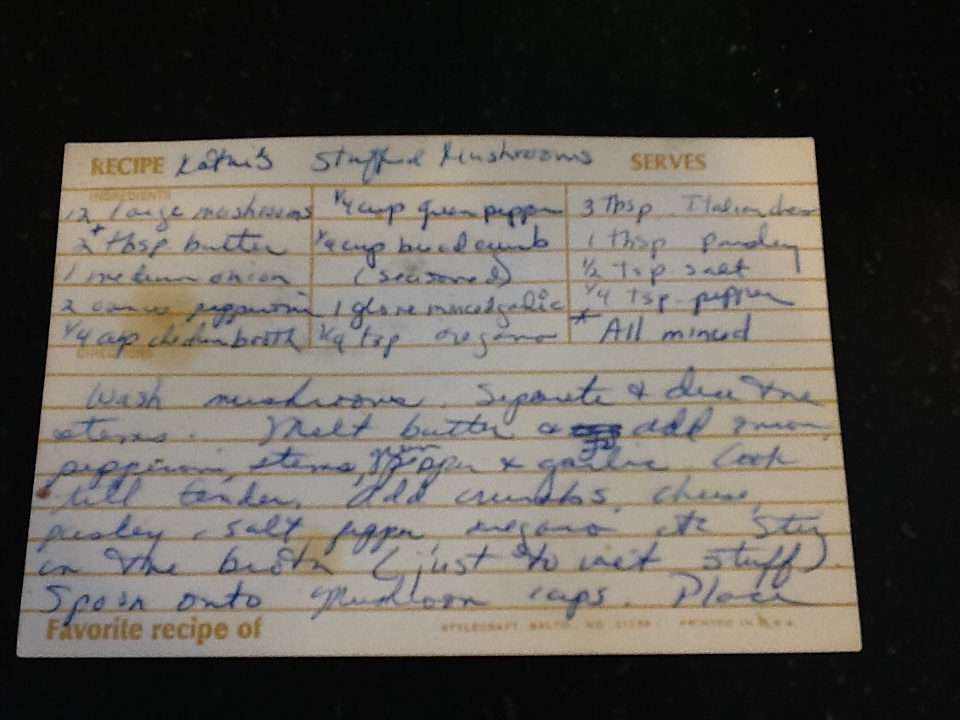 RECIPE Kathi's Stuffed Mushrooms SERVES
INGREDIENTS
12 large mushrooms
2+ tbsp butter
1 medium onion
2 ounces pepperoni
1/4 cup chicken broth
1/4 cup green pepper
1/4 cup bread crumb
(seasoned)
1 glove minced garlic
1/4 tsp oregano
3 Tbsp Italian cheese
1 Tbsp parsley
1/2 tsp salt
1/4 tsp pepper
* All minced
DIRECTIONS
Wash mushrooms. Separate & dice the
stems. Melt butter add onion,
pepperoni, stems, green pepper & garlic. Cook
till tender. Add crumbs, cheese,
parsley, salt pepper oregano etc Stir
in the broth (just to wet stuff).
Spoon onto mushroom caps. Place
Favorite recipe of STYLECRAFT, BALTO., MD. 21230 PRINTED IN U.S.A.